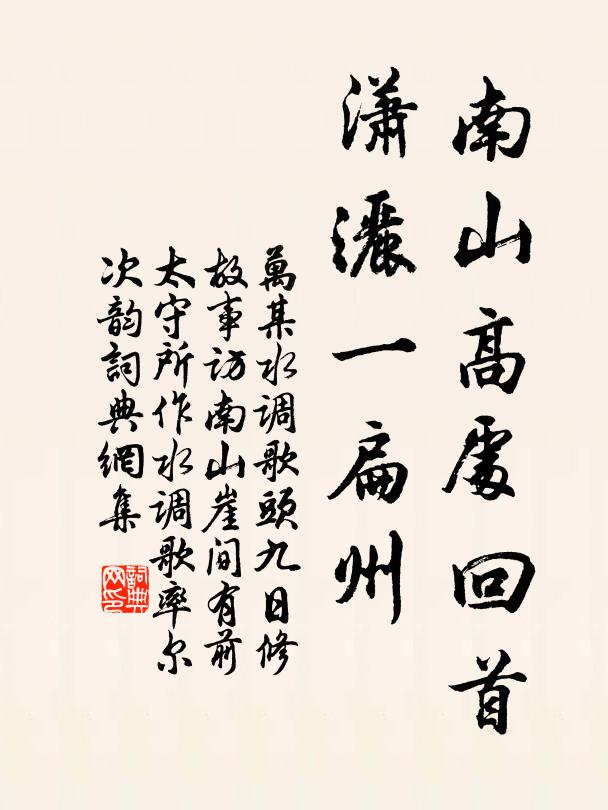 南山高處回首
瀟灑一扁州
萬某水调歌頭九日修
故事访南山崖间有前
太守所作水调歌率尔
次韵詞典網集
詞典
网印